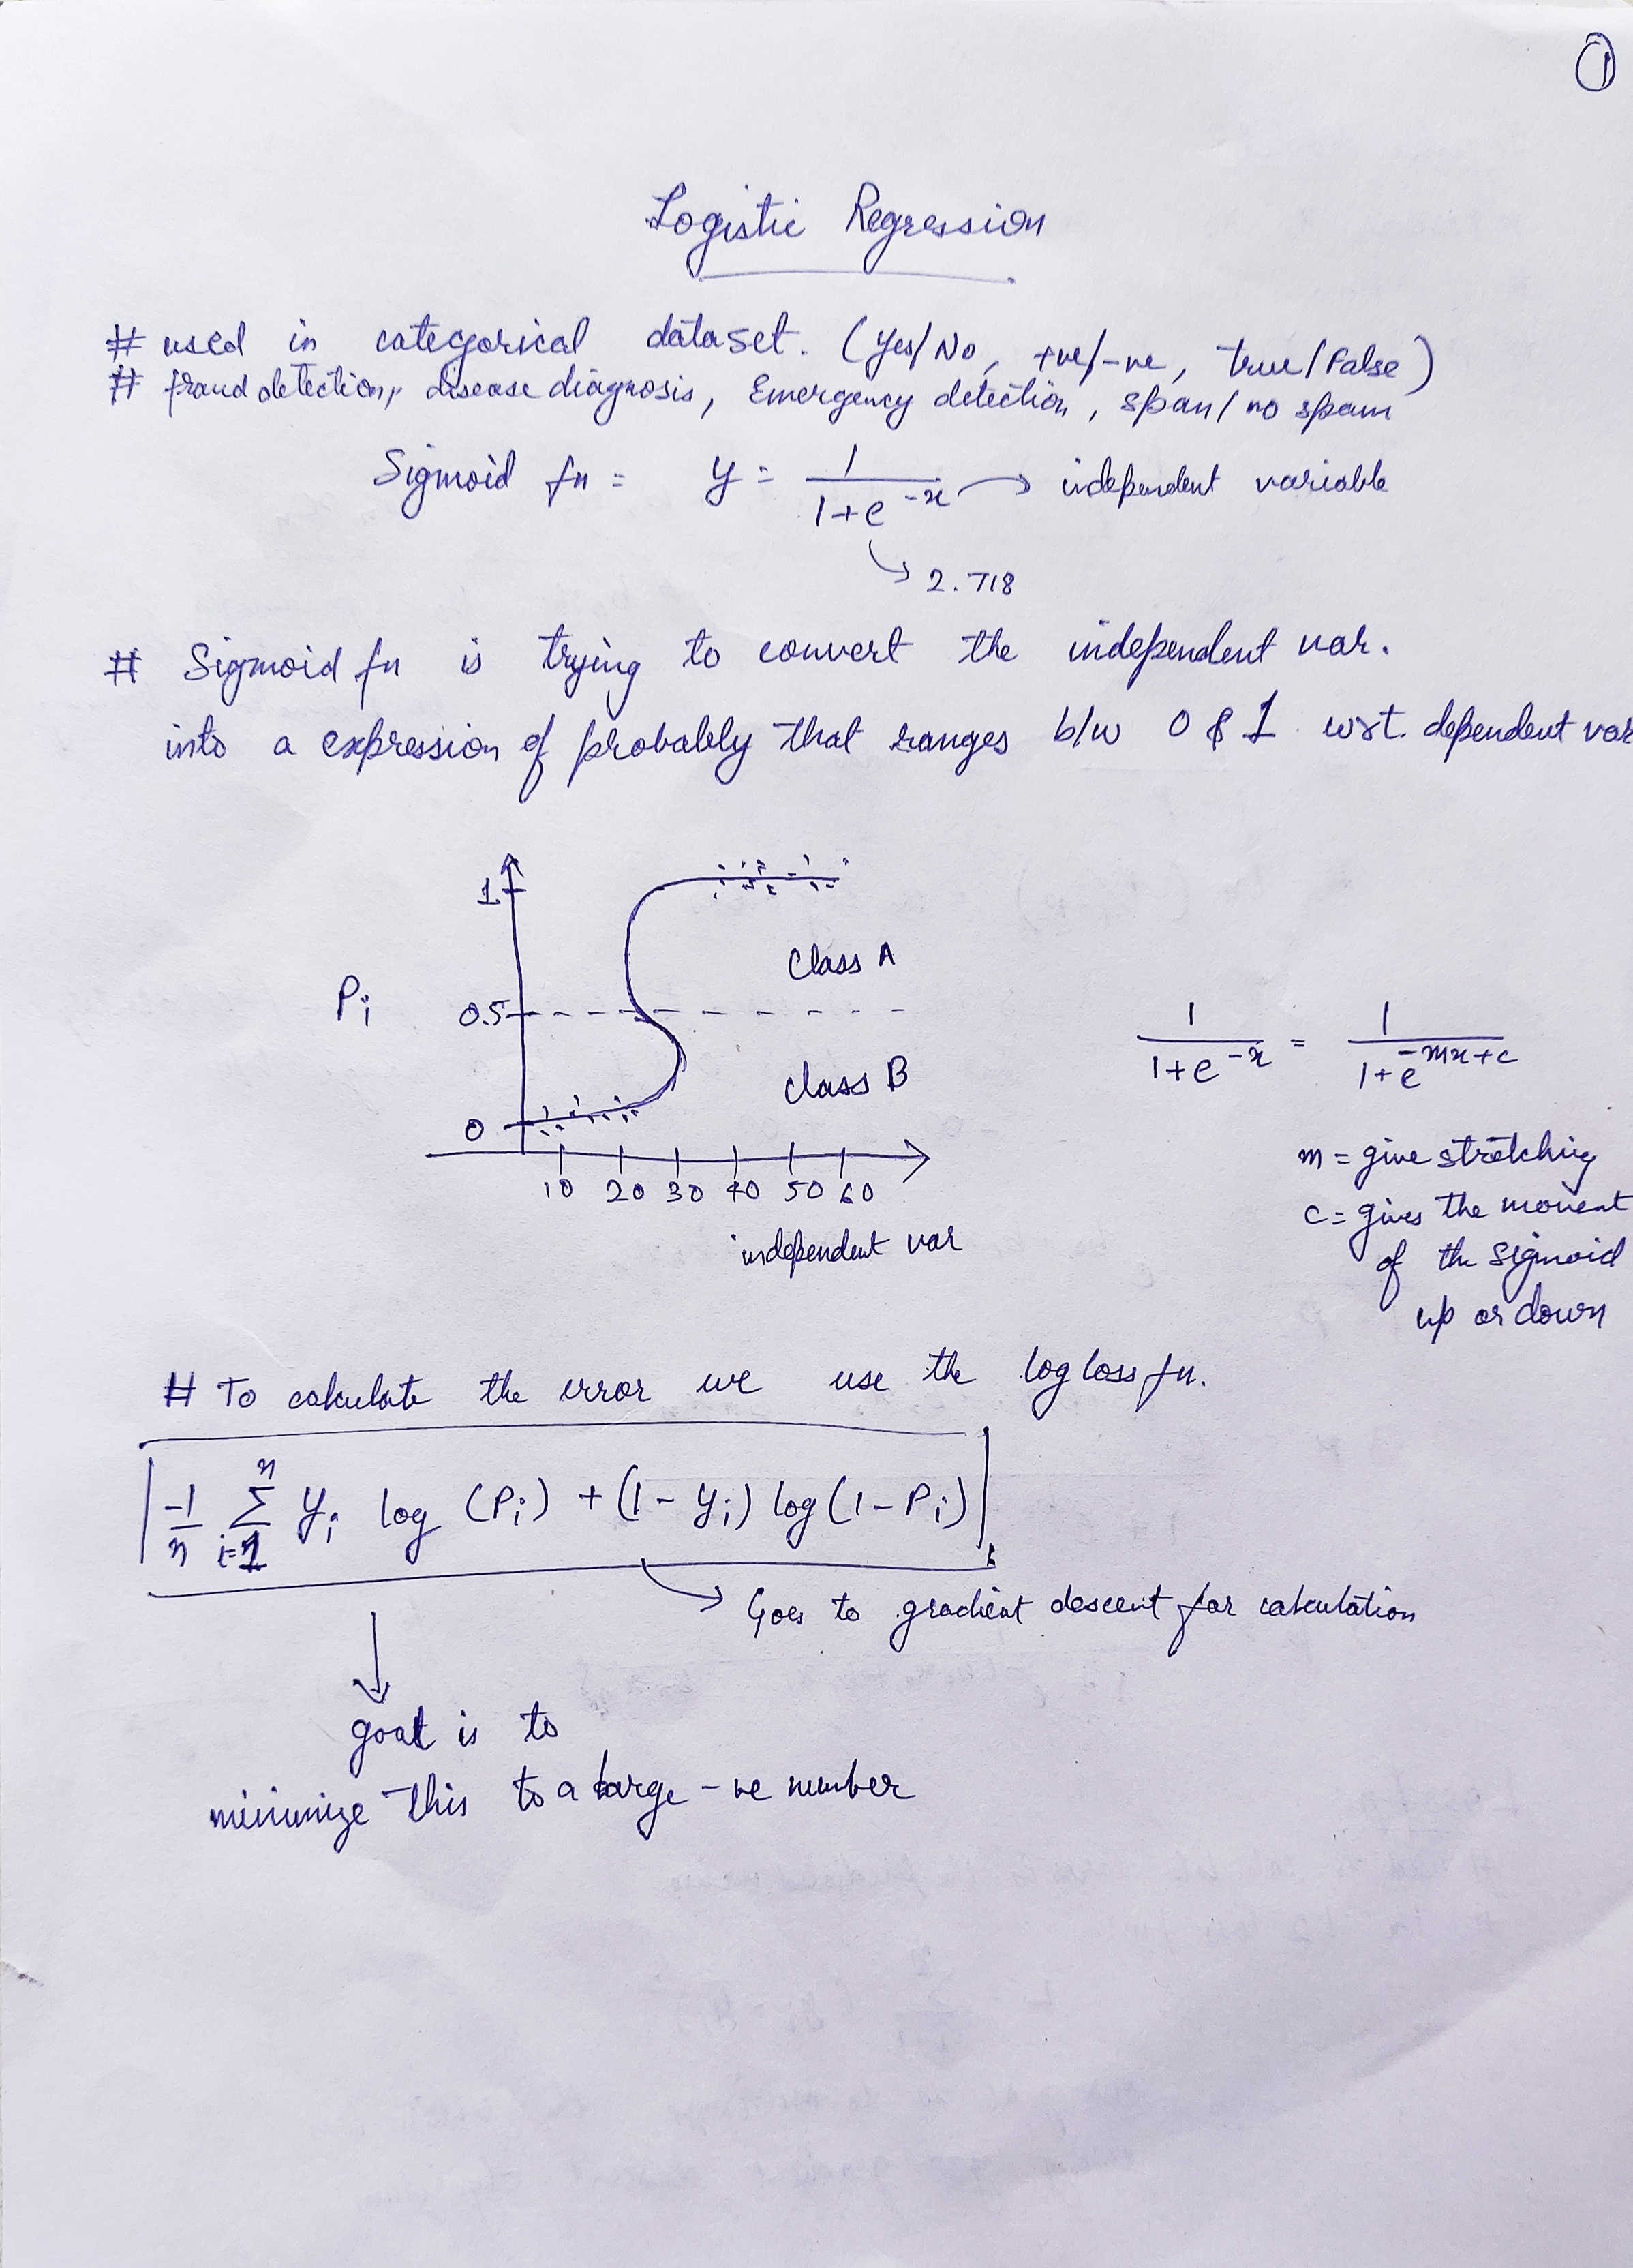 1
Logistic Regression
# used in categorical dataset. (Yes/No, +ve/-ve, true/False)
# fraud detection, disease diagnosis, Emergency detection, span/no spam
Sigmoid fn = y = 1/(1+e^-x) → independent variable
↳ 2.718
# Sigmoid fn is trying to convert the independent var.
into a expression of probably that ranges b/w 0 & 1 wrt. dependent var
1
Class A
Pi
0.5
1/(1+e^-x) = 1/(1+e^-mx+c)
class B
0
10 20 30 40 50 60
independent var
m = give stretching
c = gives the movent
of the sigmoid
up or down
# To calculate the error we use the log loss fn.
-1/n Σ i=1 n yi log (Pi) + (1-yi) log(1-Pi)
→ Goes to gradient descent for calculation
goal is to
minimize this to a large -ve number